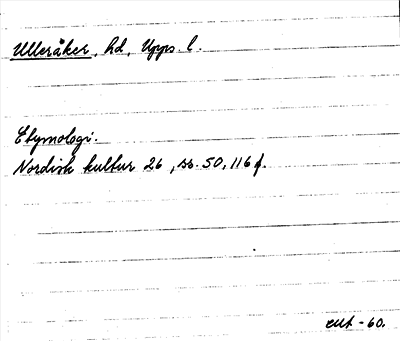 Ulleråker, hd, Upps. l.
Etymologi.
Nordisk kultur 26, ss. 50, 116 f.
-60.